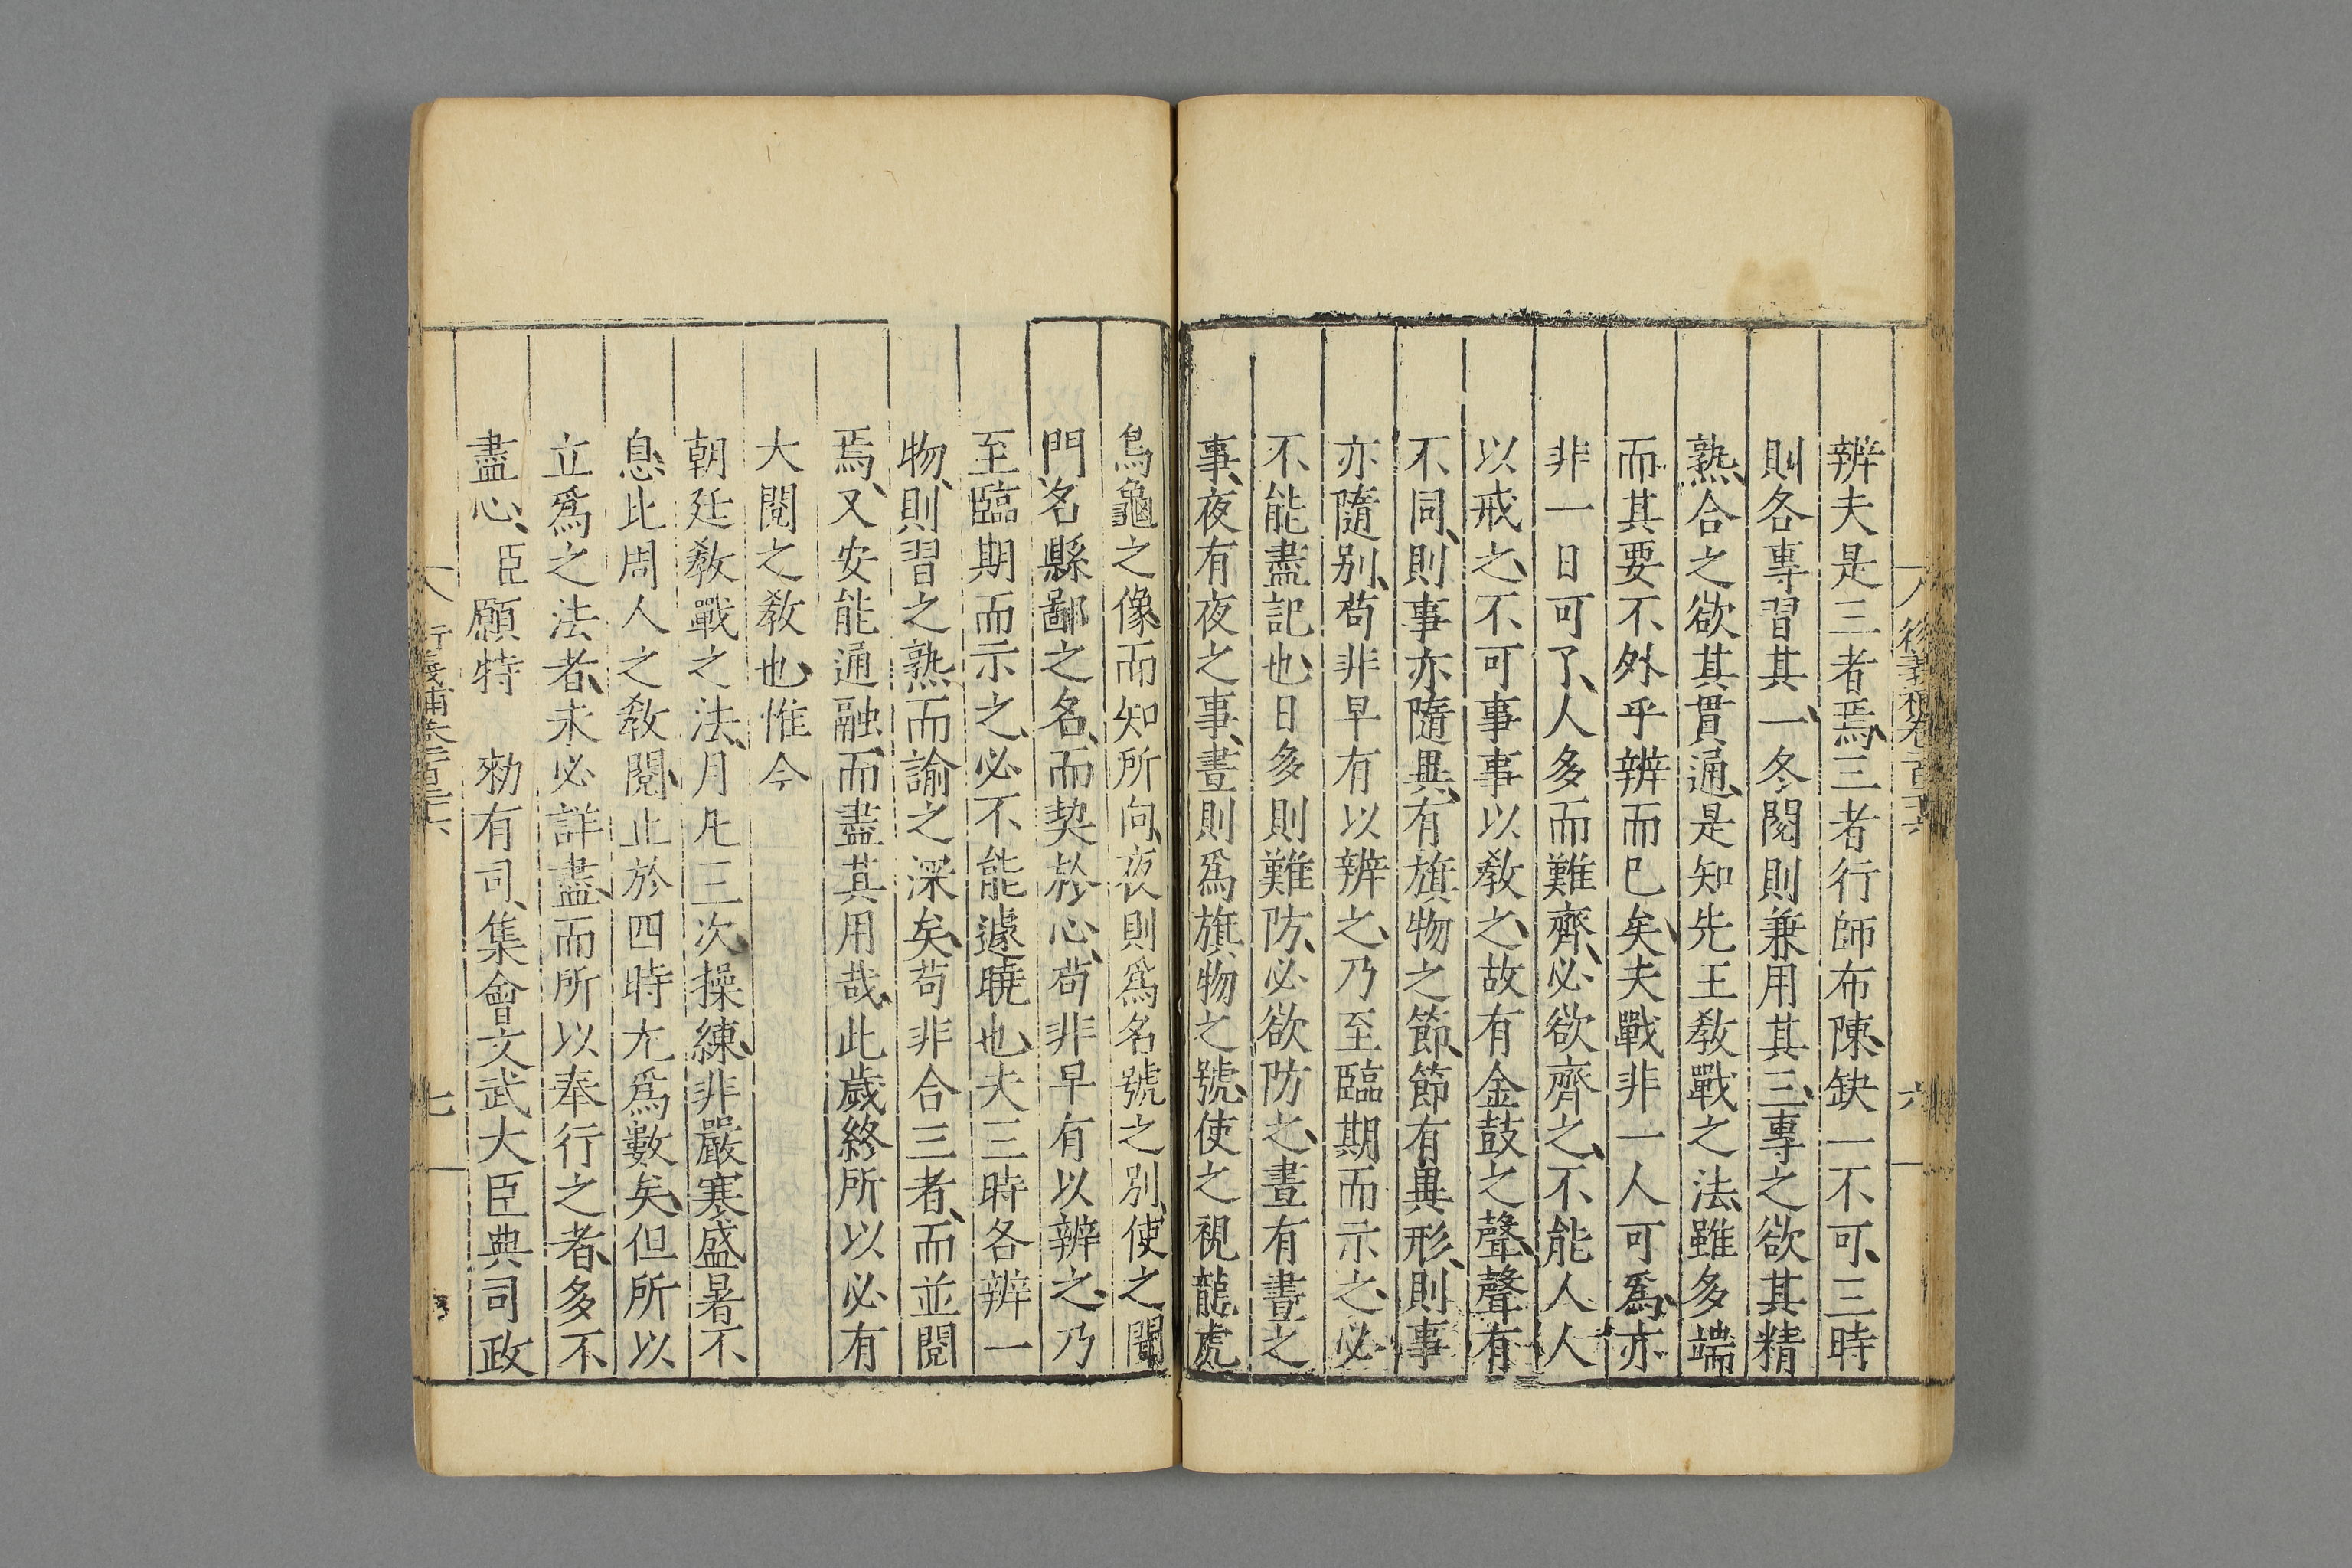 辨夫是三者焉、三者行師布陳、缺一不可、三時
則各專習其一、冬閱則兼用其三、專之欲其精
熟、合之欲其貫通、是知先王教戰之法、雖多端
而其要不外乎辨而已矣、夫戰非一人可爲、亦
非一日可了、人多而難齊、必欲齊之、不能人人
以戒之、不可事事以教之、故有金鼓之聲、聲有
不同、則事亦隨異、有旗物之節、節有異形、則事
亦隨别、苟非早有以辨之、乃至臨期而示之、必
不能盡記也、日多則難防、必欲防之、晝有晝之
事、夜有夜之事、晝則爲旗物之號、使之視龍虎
鳥龜之像、而知所向、夜則爲名號之别、使之聞
門名縣鄙之名、而契於心、苟非早有以辨之、乃
至臨期而示之、必不能遽曉也、夫三時各辨一
物、則習之熟而諭之深矣、苟非合三者、而並閱
焉、又安能通融、而盡其用哉、此歲終所以必有
大閱之教也、惟今
朝廷教戰之法、月凡三次、操練、非嚴寒盛暑不
息、比周人之教閱、止於四時尤爲數矣、但所以
立爲之法者、未必詳盡、而所以奉行之者、多不
盡心、臣願特 勑有司、集會文武大臣典司政
七